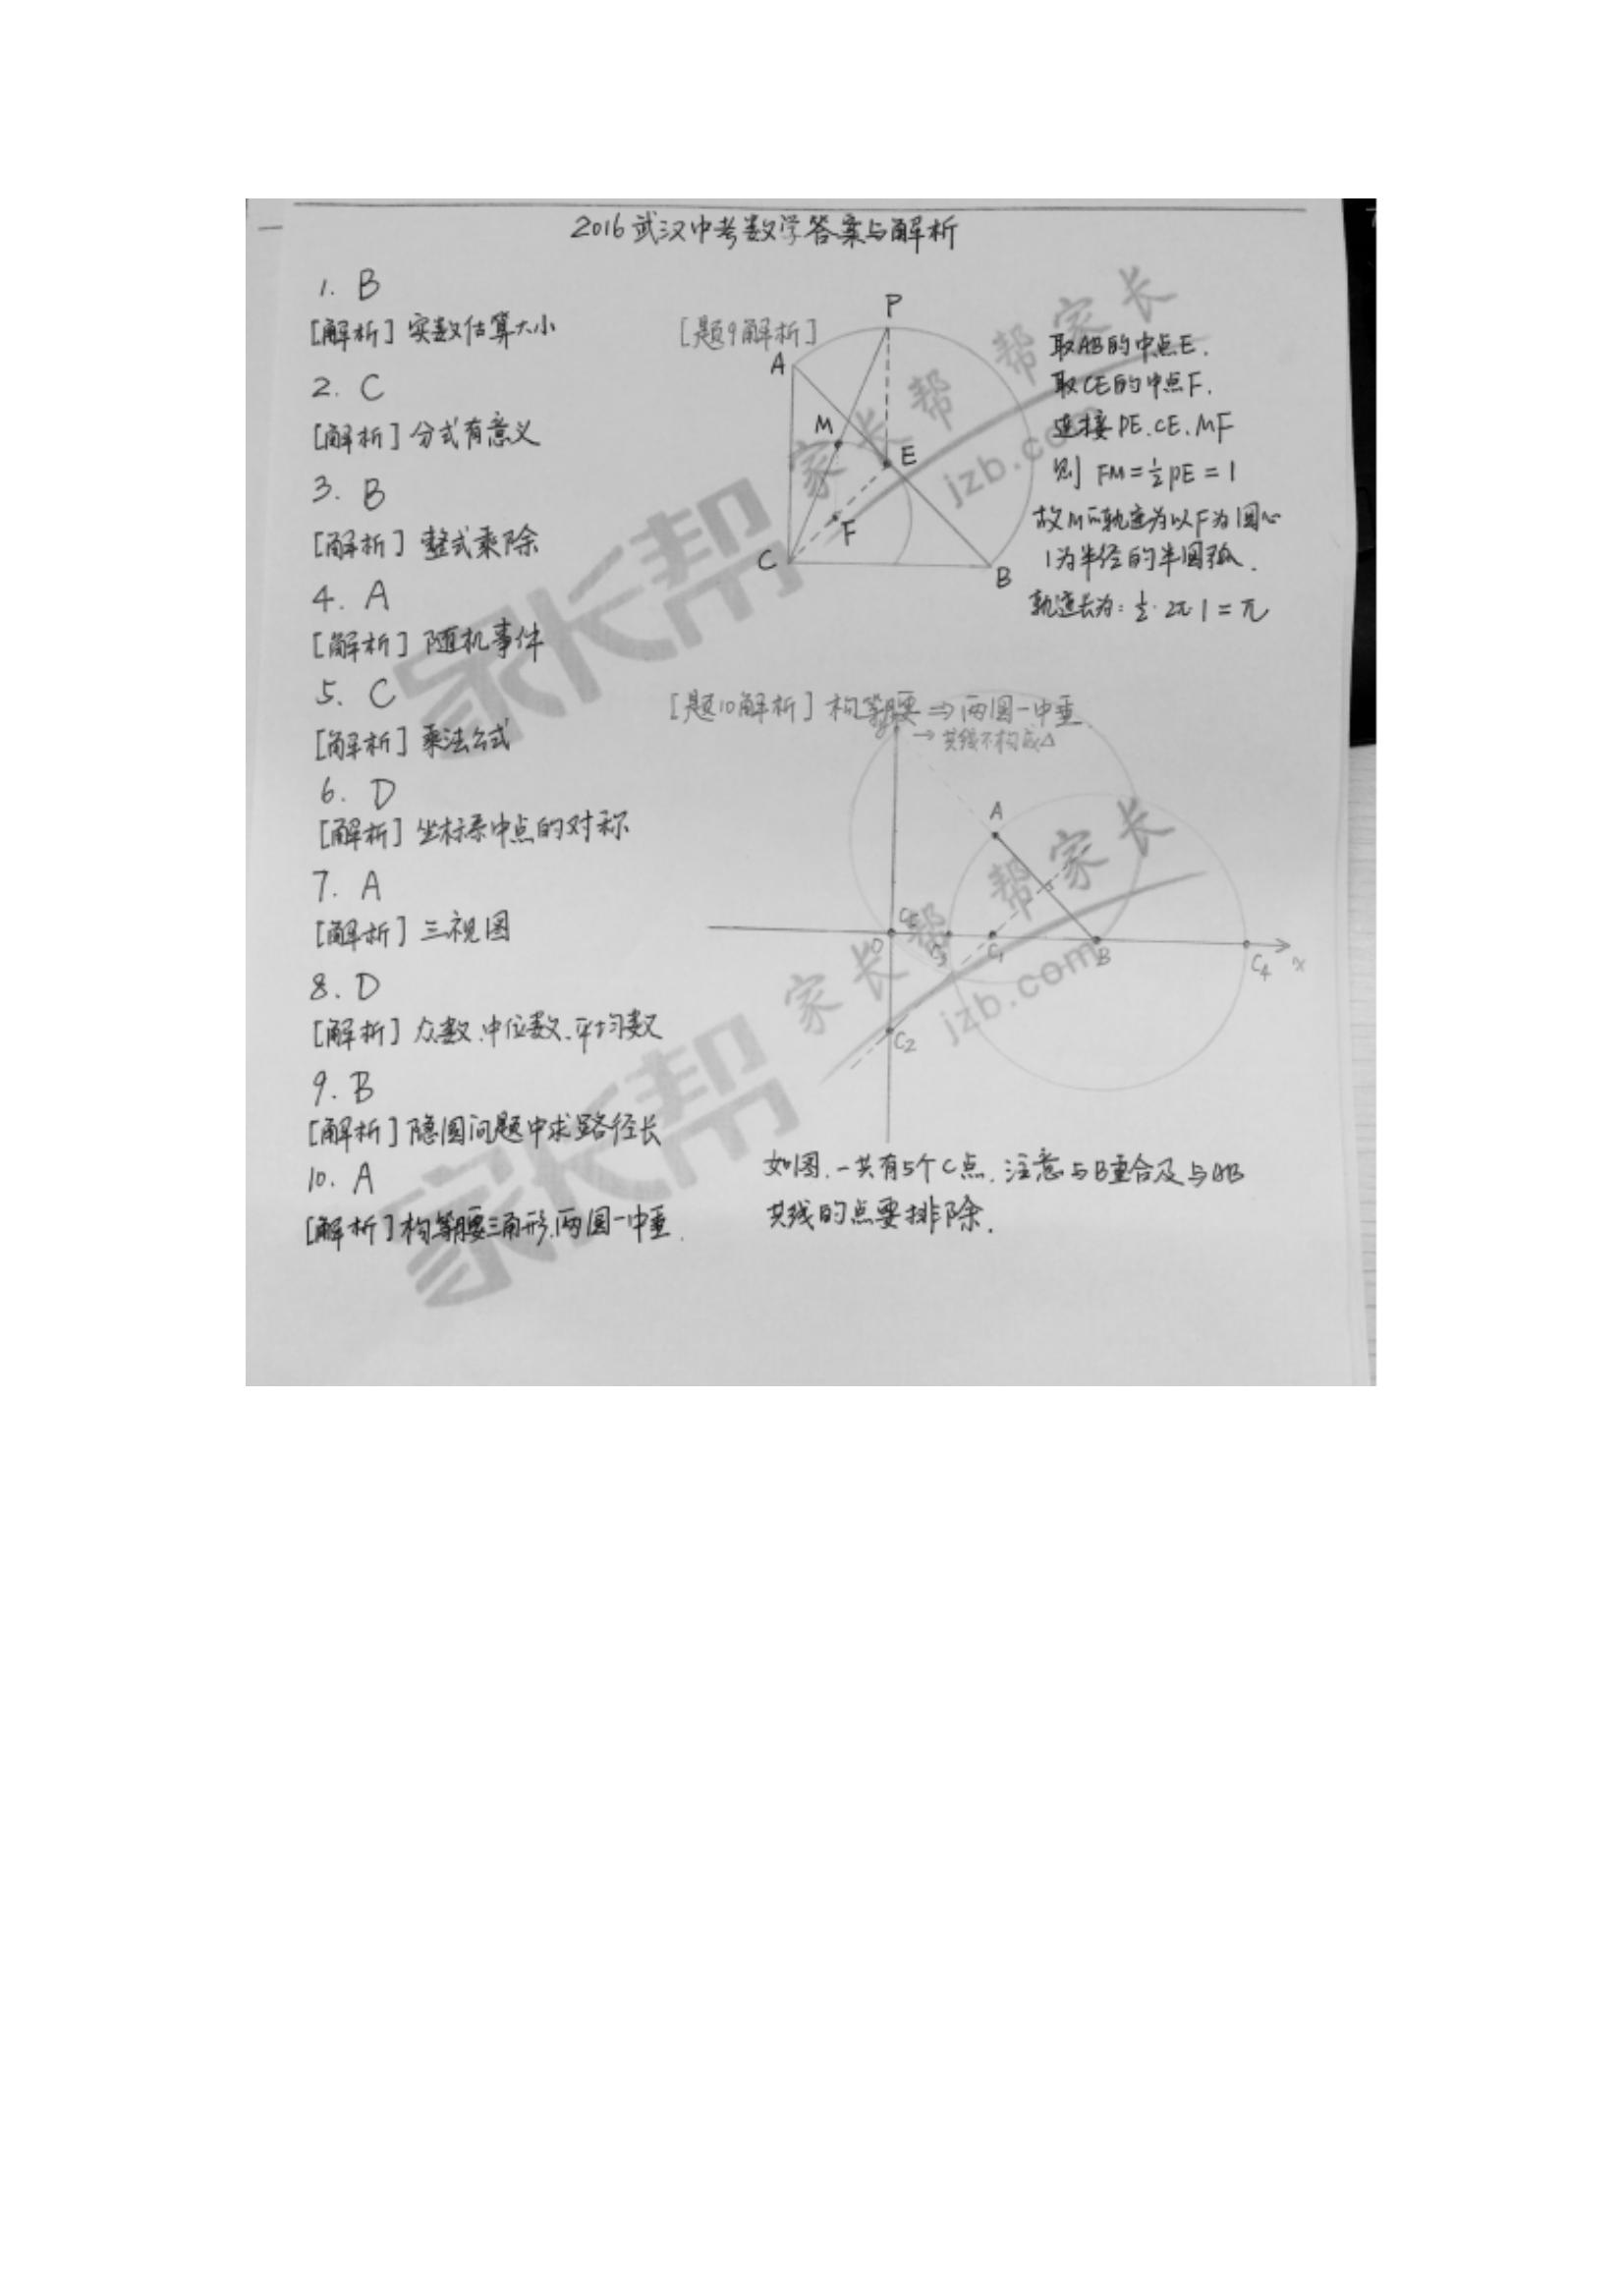 2016武汉中考数学答案与解析
1. B
[解析] 实数估算大小
2. C
[解析] 分式有意义
3. B
[解析] 整式乘除
4. A
[解析] 随机事件
5. C
[解析] 乘法公式
6. D
[解析] 坐标系中点的对称
7. A
[解析] 三视图
8. D
[解析] 众数.中位数.平均数
9. B
[解析] 隐圆问题中求路径长
10. A
[解析] 构等腰三角形.两圆一中垂.
[题9解析]
P
A
M
E
F
C
B
取AB的中点E.
取CE的中点F.
连接PE.CE.MF
则 FM=½PE=1
故M的轨迹为以F为圆心
1为半径的半圆弧.
轨迹长为: ½·2π·1=π
[题10解析] 构等腰⇒两圆一中垂.
y
→共线不构成△
A
C5
O
C3
C1
B
C4
x
C2
如图.一共有5个C点.注意与B重合及与AB
共线的点要排除.
家长帮
家长帮
家长帮 帮家长
jzb.com
家长帮 帮家长
jzb.com